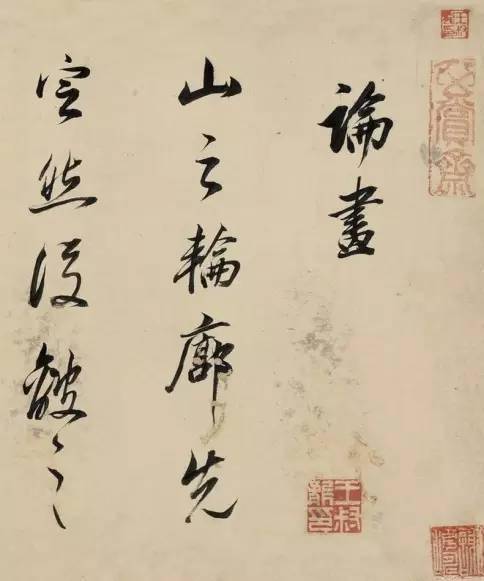 玄賞齋
論畫
山之輪廓先
定然後皴之